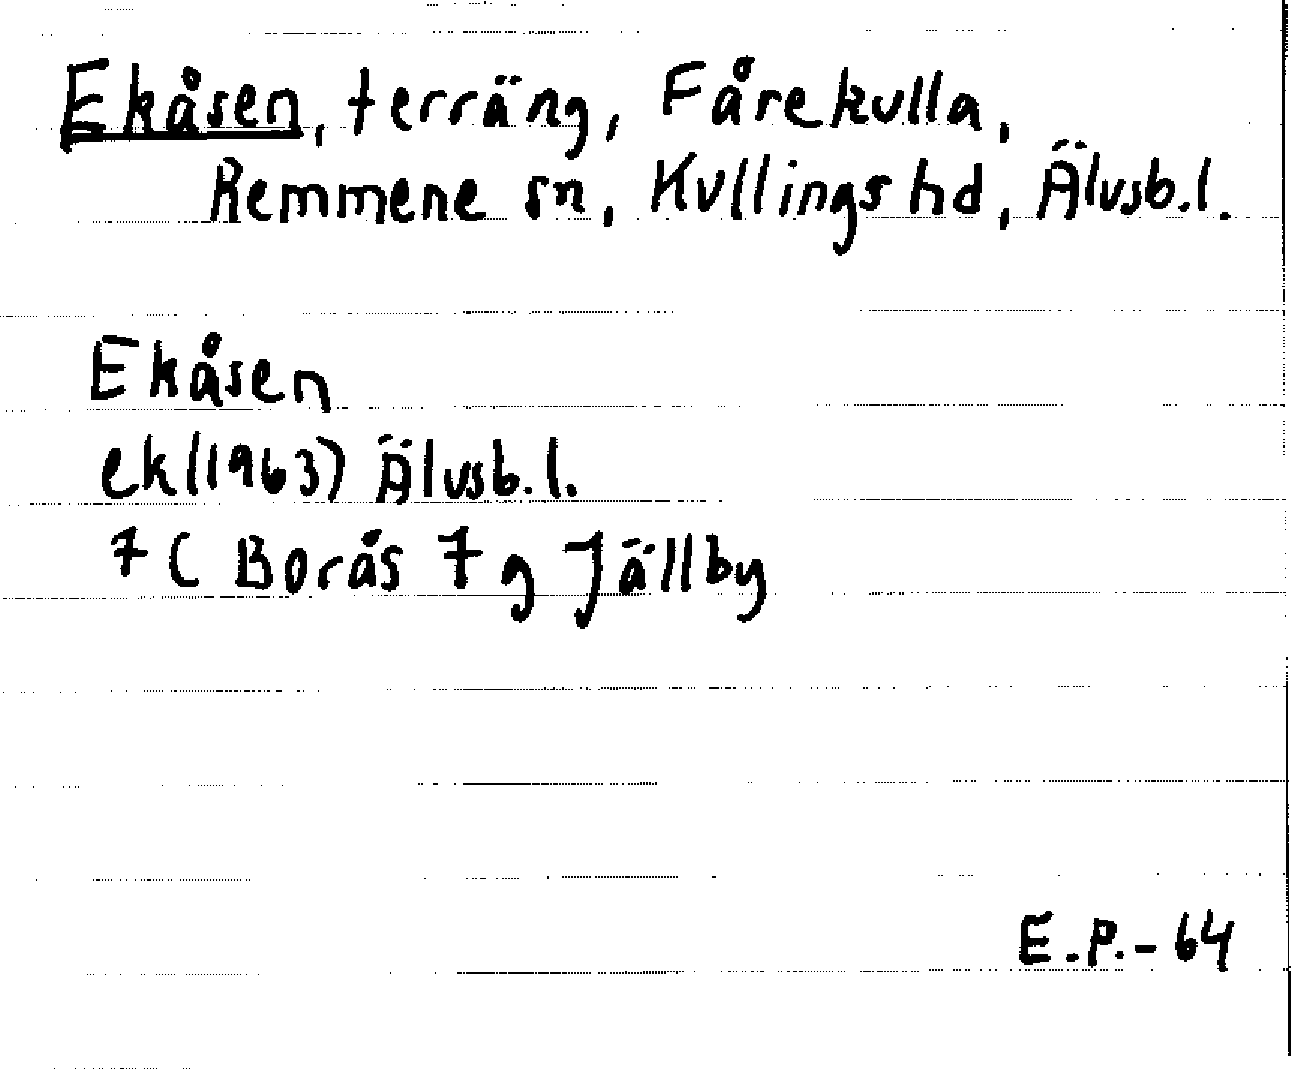 Ekåsen, terräng, Fårekulla,
Remmene sn, Kullings hd, Älvsb.l.
Ekåsen
ek(1963) Älvsb.l.
7C Borås 7g Jällby
E.P.-64